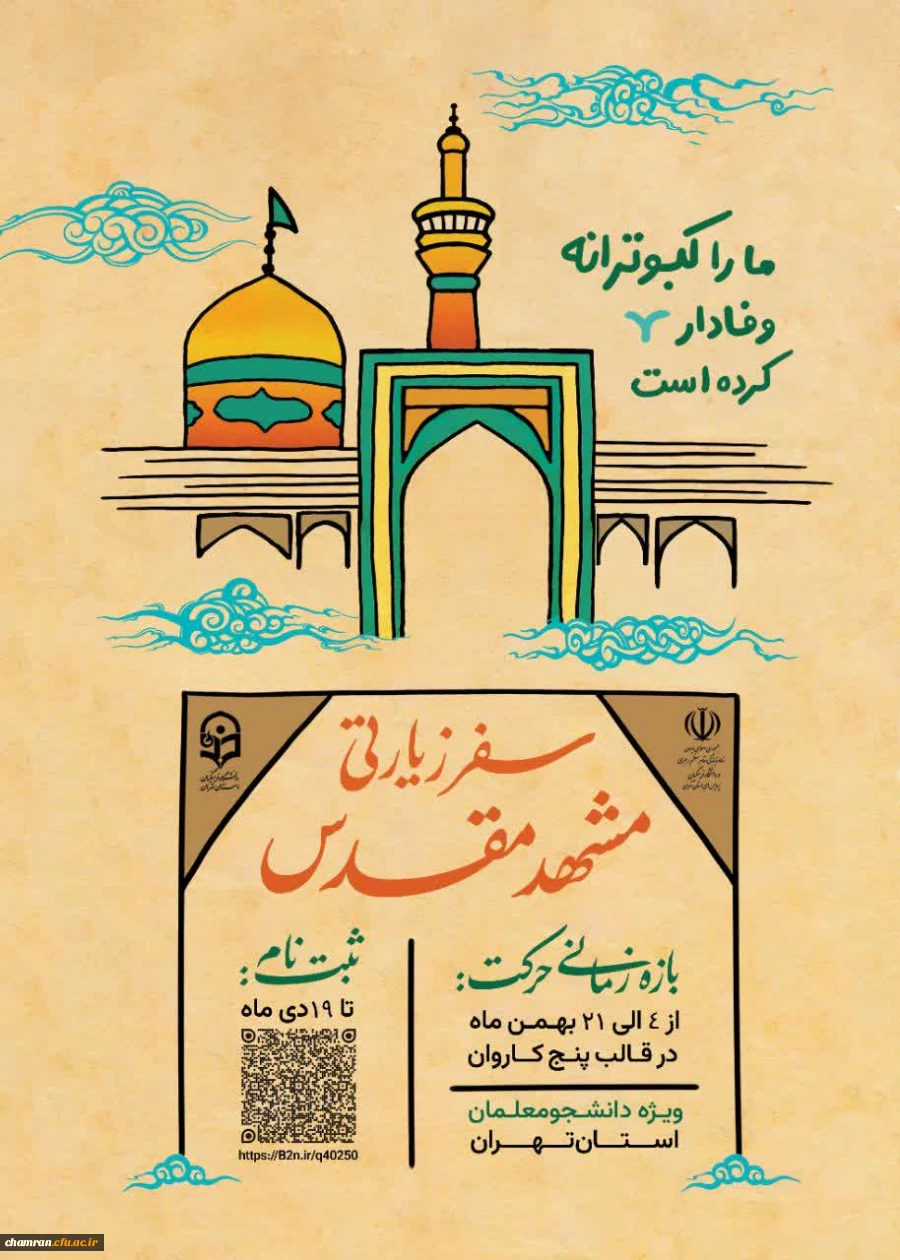 ما را کبوترانه
وفادار ۲
کرده است
سفر زیارتی
مشهد مقدس
بازه زمانی حرکت:
از ٤ الی ۲۱ بهمن ماه
در قالب پنج کاروان
ویژه دانشجومعلمان
استان تهران
ثبت نام:
تا ۱۹ دی ماه
https://B2n.ir/q40250
chamran.cfu.ac.ir